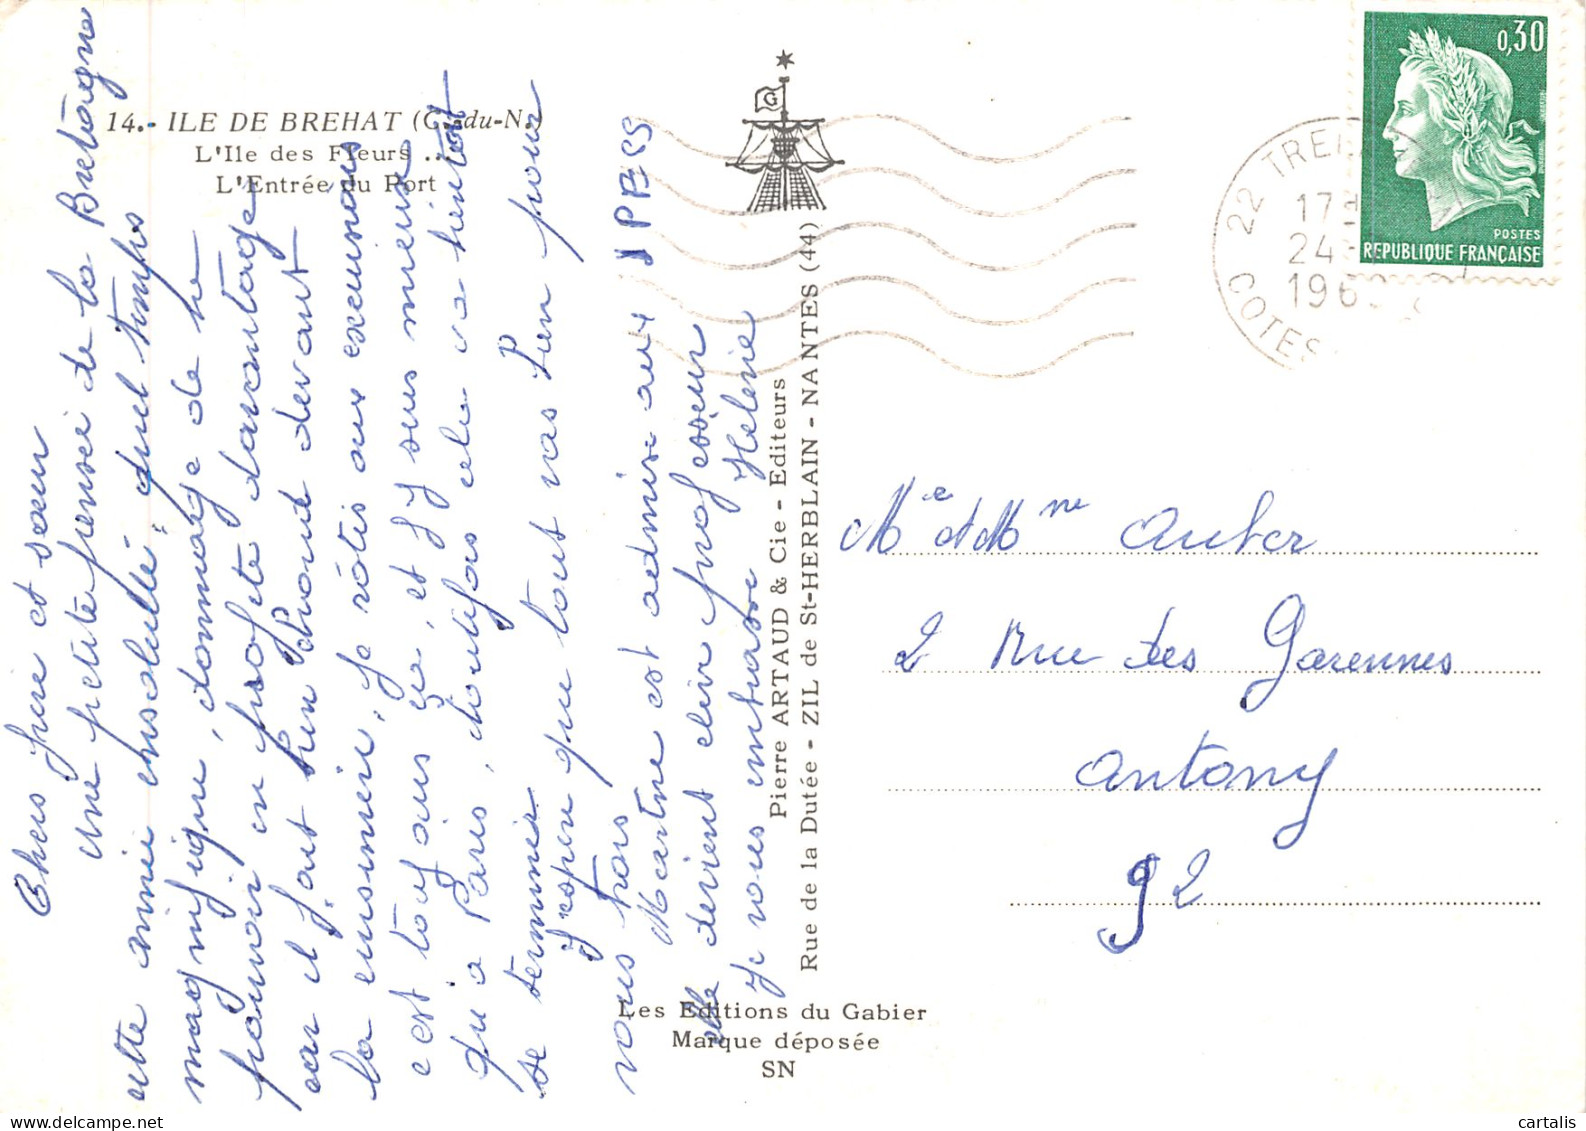 14.- ILE DE BREHAT (C.-du-N.)
L'Ile des Fleurs ...
L'Entrée du Port
Chers frère et sœur
Une petite pensée de la Bretagne
cette année ensoleillée, quel temps
magnifique, dommage de ne
pouvoir en profite davantage
car il fait bien chaud devant
la cuisinière, je rôtis aux
c'est toujours ça, et j'y suis mieux
qu'a Paris, toutefois cela va bientôt
se terminer
J'espère que tout vas bien pour
vous trois
Martine est admise aux IPES
elle devient élève professeur
Je vous embrasse Hélène
Pierre ARTAUD & Cie - Editeurs
Rue de la Dutée - ZIL de St-HERBLAIN - NANTES (44)
Les Editions du Gabier
Marque déposée
SN
G
0,30
POSTES
REPUBLIQUE FRANÇAISE
22 TRE
17 H
24 -
196
COTES
Mr et Mme Auber
2 Rue des Garennes
Antony
92
cartalis
delcampe.net